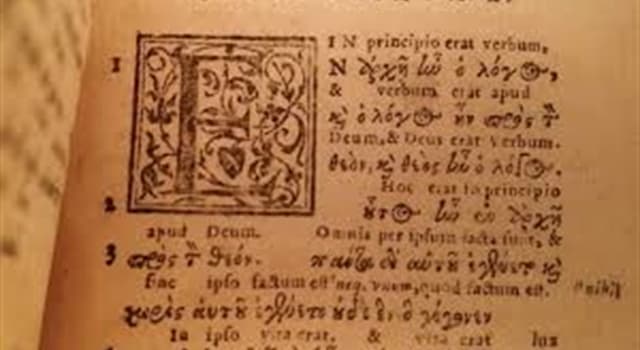 IN principio erat verbum,
1 ΕΝ ἀρχῇ ἦν ὁ λόγος,
& verbum erat apud
καὶ ὁ λόγος ἦν πρὸς τὸν
Deum, & Deus erat verbum.
θεόν, καὶ θεὸς ἦν ὁ λόγος.
Hoc erat in principio
2 οὗτος ἦν ἐν ἀρχῇ
apud Deum. Omnia per ipsum facta sunt, &
3 πρὸς τὸν θεόν. πάντα δι' αὐτοῦ ἐγένετο καὶ
sine ipso factum est neq, unum, quod factum est.
χωρὶς αὐτοῦ ἐγένετο οὐδὲ ἓν, ὃ γέγονεν
In ipso vita erat, & vita erat lux